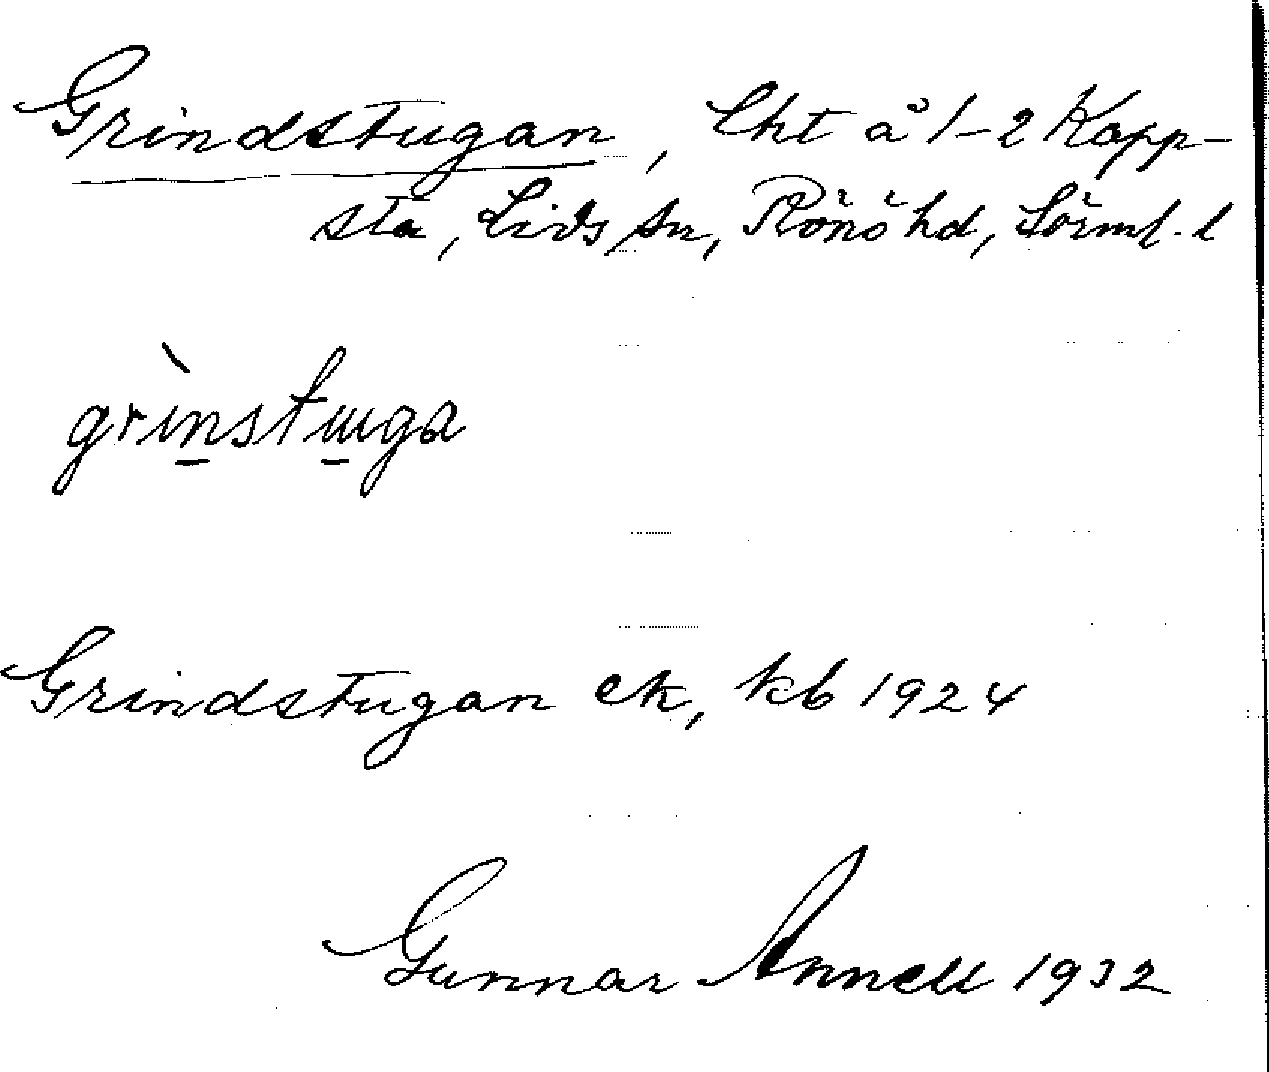 Grindstugan, lht å 1-2 Kapp-
sta, Lids sn, Rönö hd, Sörml. l
grinstuga
Grindstugan ek, kb 1924
Gunnar Annell 1932